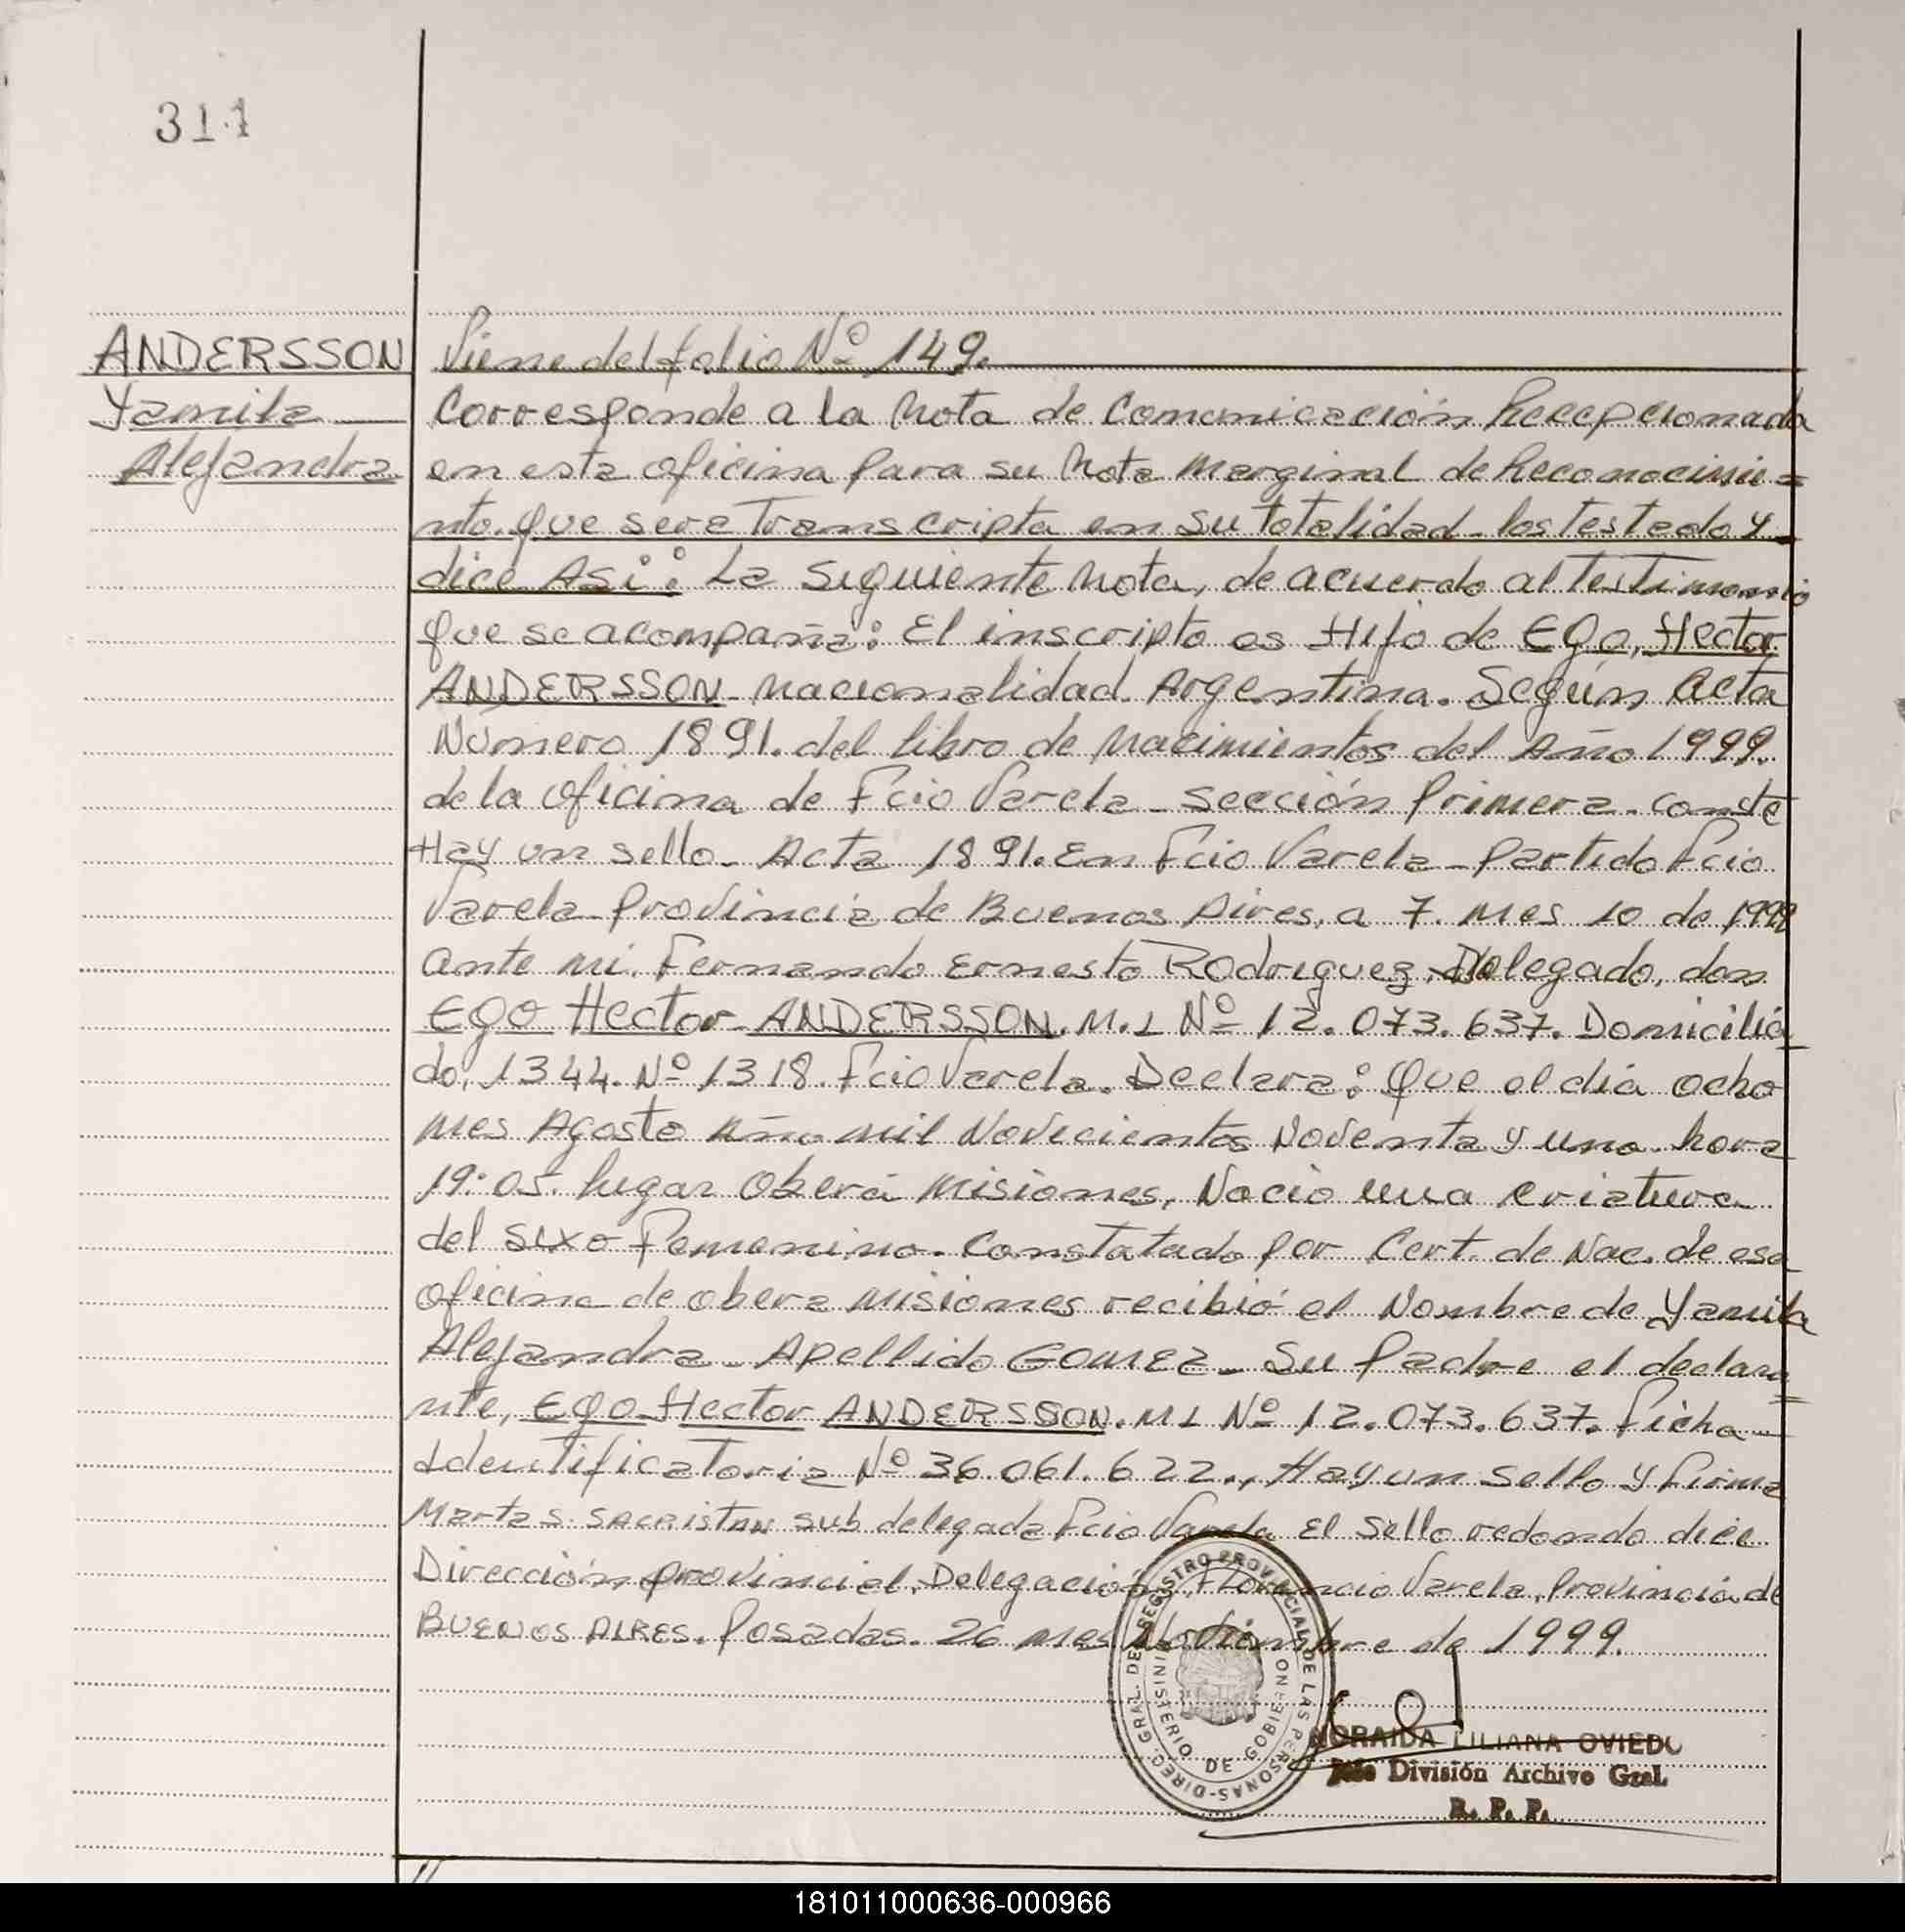 311
ANDERSSON
Yamila
Alejandra
Viene del folio Nº 149.
Corresponde a la Nota de Comunicación Recepcionada
en esta oficina Para su Nota Marginal de Reconocimie=
nto. Que sera Transcripta en su totalidad - los testado y
dice Asi: La Siguiente Nota, de acuerdo al Testimonio
Que se acompaña: El inscripto es Hijo de EGO, Hector
ANDERSSON - Nacionalidad Argentina. Según Acta
Número 1891. del libro de Nacimientos del Año 1999.
de la Oficina de Fcio Varela - Sección Primera. Conste
Hay un sello - Acta 1891. En Fcio Varela - Partido Fcio
Varela - Provincia de Buenos Aires, a 7. Mes 10 de 1999
ante mi. Fernando Ernesto Rodriguez, Delegado, don
EGO Hector ANDERSSON. M.I Nº 12.073.637. Domicilia
do, 1344. Nº 1318. Fcio Varela. Declara: Que el día ocho
Mes Agosto Año mil Novecientos Noventa y uno. hora
19:05. lugar Oberá Misiones, Nacio una criatura
del sexo Femenino. Constatado por Cert. de Nac. de esa
oficina de obera Misiones recibió el Nombre de Yamila
Alejandra - Apellido GOMEZ - Su Padre el declara=
nte, EGO Hector ANDERSSON. MI Nº 12.073.637. Ficha
Identificatoria Nº 36.061.622., Hay un sello y firma
Marta S. SACRISTAN sub delegada Fcio Varela El Sello redondo dice
Dirección provincial, Delegación, Florencio Varela, Provincia de
BUENOS AIRES. Posadas. 26 Mes Noviembre de 1999.
DIREC. GRAL. DEL REGISTRO PROVINCIAL DE LAS PERSONAS
MINISTERIO DE GOBIERNO
NORAIDA LILIANA OVIEDO
Jefe División Archivo Gral.
R. P. P.
181011000636-000966